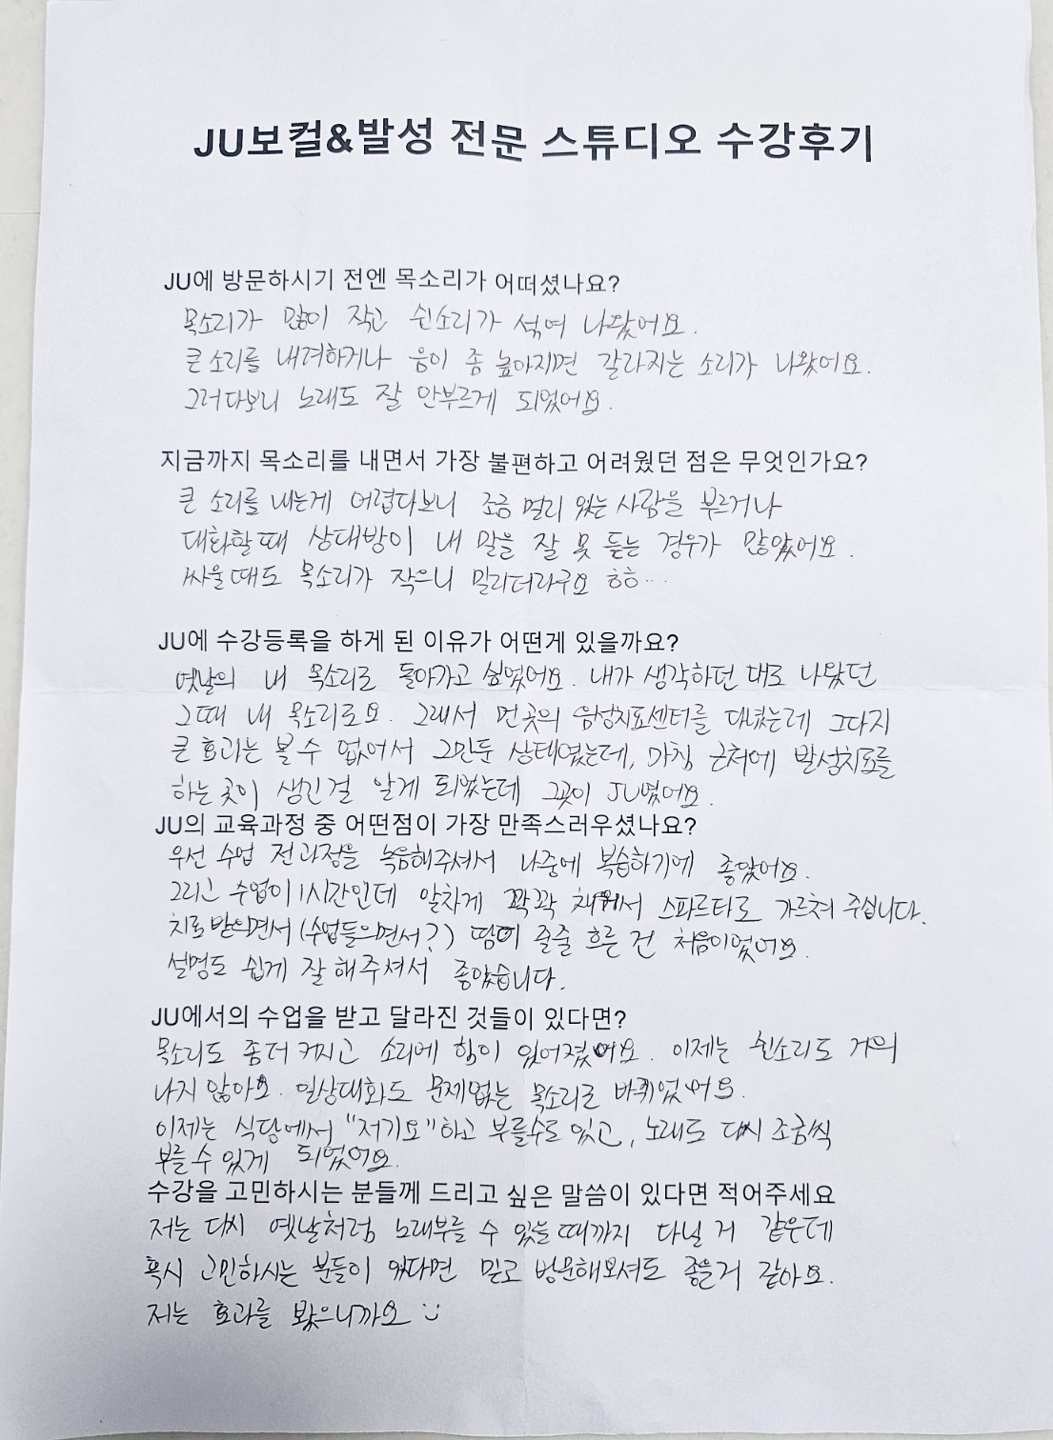 JU보컬&발성 전문 스튜디오 수강후기
JU에 방문하시기 전엔 목소리가 어떠셨나요?
목소리가 많이 작고 쉰소리가 섞여 나왔어요.
큰 소리를 내려하거나 음이 좀 높아지면 갈라지는 소리가 나왔어요.
그러다보니 노래도 잘 안부르게 되었어요.
지금까지 목소리를 내면서 가장 불편하고 어려웠던 점은 무엇인가요?
큰 소리를 내는게 어렵다보니 조금 멀리 있는 사람을 부르거나
대화할때 상대방이 내 말을 잘 못 듣는 경우가 많았어요.
싸울때도 목소리가 작으니 밀리더라구요 ㅎㅎ...
JU에 수강등록을 하게 된 이유가 어떤게 있을까요?
옛날의 내 목소리로 돌아가고 싶었어요. 내가 생각하던 대로 나왔던
그때 내 목소리로요. 그래서 먼곳의 음성치료센터를 다녔는데 그다지
큰 효과는 볼 수 없어서 그만둔 상태였는데, 마침 근처에 발성치료를
하는 곳이 생긴걸 알게 되었는데 그곳이 JU였어요.
JU의 교육과정 중 어떤점이 가장 만족스러우셨나요?
우선 수업 전과정을 녹음해주셔서 나중에 복습하기에 좋았어요.
그리고 수업이 1시간인데 알차게 꽉꽉 채워서 스파르타로 가르쳐 주십니다.
치료받으면서(수업들으면서?) 땀이 줄줄 흐른 건 처음이었어요.
설명도 쉽게 잘 해주셔서 좋았습니다.
JU에서의 수업을 받고 달라진 것들이 있다면?
목소리도 좀더 커지고 소리에 힘이 있어졌어요. 이제는 쉰소리도 거의
나지 않아요. 일상대화도 문제없는 목소리로 바뀌었어요.
이제는 식당에서 "저기요"하고 부를수도 있고, 노래도 다시 조금씩
부를 수 있게 되었어요.
수강을 고민하시는 분들께 드리고 싶은 말씀이 있다면 적어주세요
저는 다시 옛날처럼 노래부를 수 있을 때까지 다닐 거 같은데
혹시 고민하시는 분들이 있다면 믿고 방문해보셔도 좋을거 같아요.
저는 효과를 봤으니까요 :)